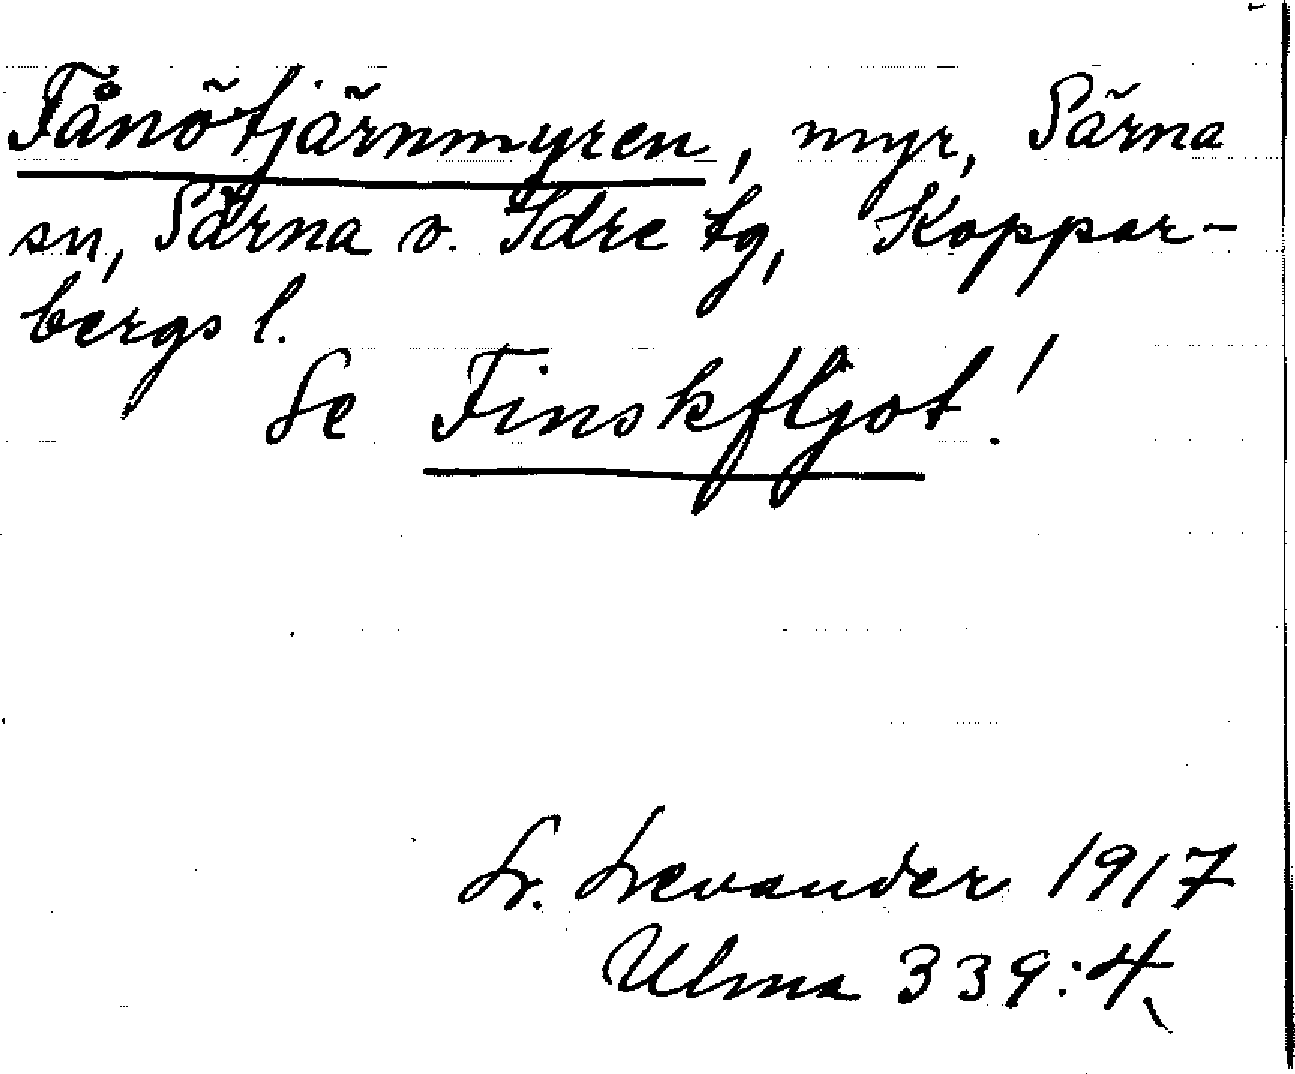 Tånötjärnmyren, myr, Särna
sn, Särna o. Idre tg, Koppar-
bergs l.
Se Finskfljot!
L. Levander 1917
Ulma 339:4.